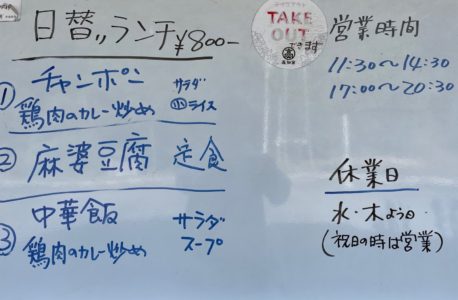 日替〃ランチ ¥800-
① チャンポン サラダ
鶏肉のカレー炒め 小ライス
② 麻婆豆腐 定食
③ 中華飯 サラダ
鶏肉のカレー炒め スープ
TAKE
OUT
できます
営業時間
11:30〜14:30
17:00〜20:30
休業日
水・木よう日
(祝日の時は営業)